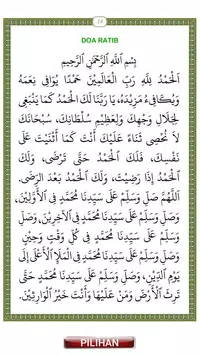 ١٤
DOA RATIB
بِسْمِ اللّٰهِ الرَّحْمٰنِ الرَّحِيْمِ
اَلْحَمْدُ لِلّٰهِ رَبِّ الْعَالَمِيْنَ حَمْدًا يُوَافِيْ نِعَمَهُ
وَيُكَافِىءُ مَزِيْدَهُ، يَا رَبَّنَا لَكَ الْحَمْدُ كَمَا يَنْبَغِيْ
لِجَلَالِ وَجْهِكَ وَلِعَظِيْمِ سُلْطَانِكَ، سُبْحَانَكَ
لَا نُحْصِيْ ثَنَاءً عَلَيْكَ أَنْتَ كَمَا أَثْنَيْتَ عَلَى
نَفْسِكَ، فَلَكَ الْحَمْدُ حَتَّى تَرْضَى، وَلَكَ
الْحَمْدُ إِذَا رَضِيْتَ، وَلَكَ الْحَمْدُ بَعْدَ الرِّضَى.
اَللّٰهُمَّ صَلِّ وَسَلِّمْ عَلَى سَيِّدِنَا مُحَمَّدٍ فِي الْأَوَّلِيْنَ،
وَصَلِّ وَسَلِّمْ عَلَى سَيِّدِنَا مُحَمَّدٍ فِي الْآخِرِيْنَ،
وَصَلِّ وَسَلِّمْ عَلَى سَيِّدِنَا مُحَمَّدٍ فِيْ كُلِّ وَقْتٍ وَحِيْنٍ،
وَصَلِّ وَسَلِّمْ عَلَى سَيِّدِنَا مُحَمَّدٍ فِي الْمَلَإِ الْأَعْلَى إِلَى
يَوْمِ الدِّيْنِ، وَصَلِّ وَسَلِّمْ عَلَى سَيِّدِنَا مُحَمَّدٍ حَتَّى
تَرِثَ الْأَرْضَ وَمَنْ عَلَيْهَا وَأَنْتَ خَيْرُ الْوَارِثِيْنَ.
PILIHAN